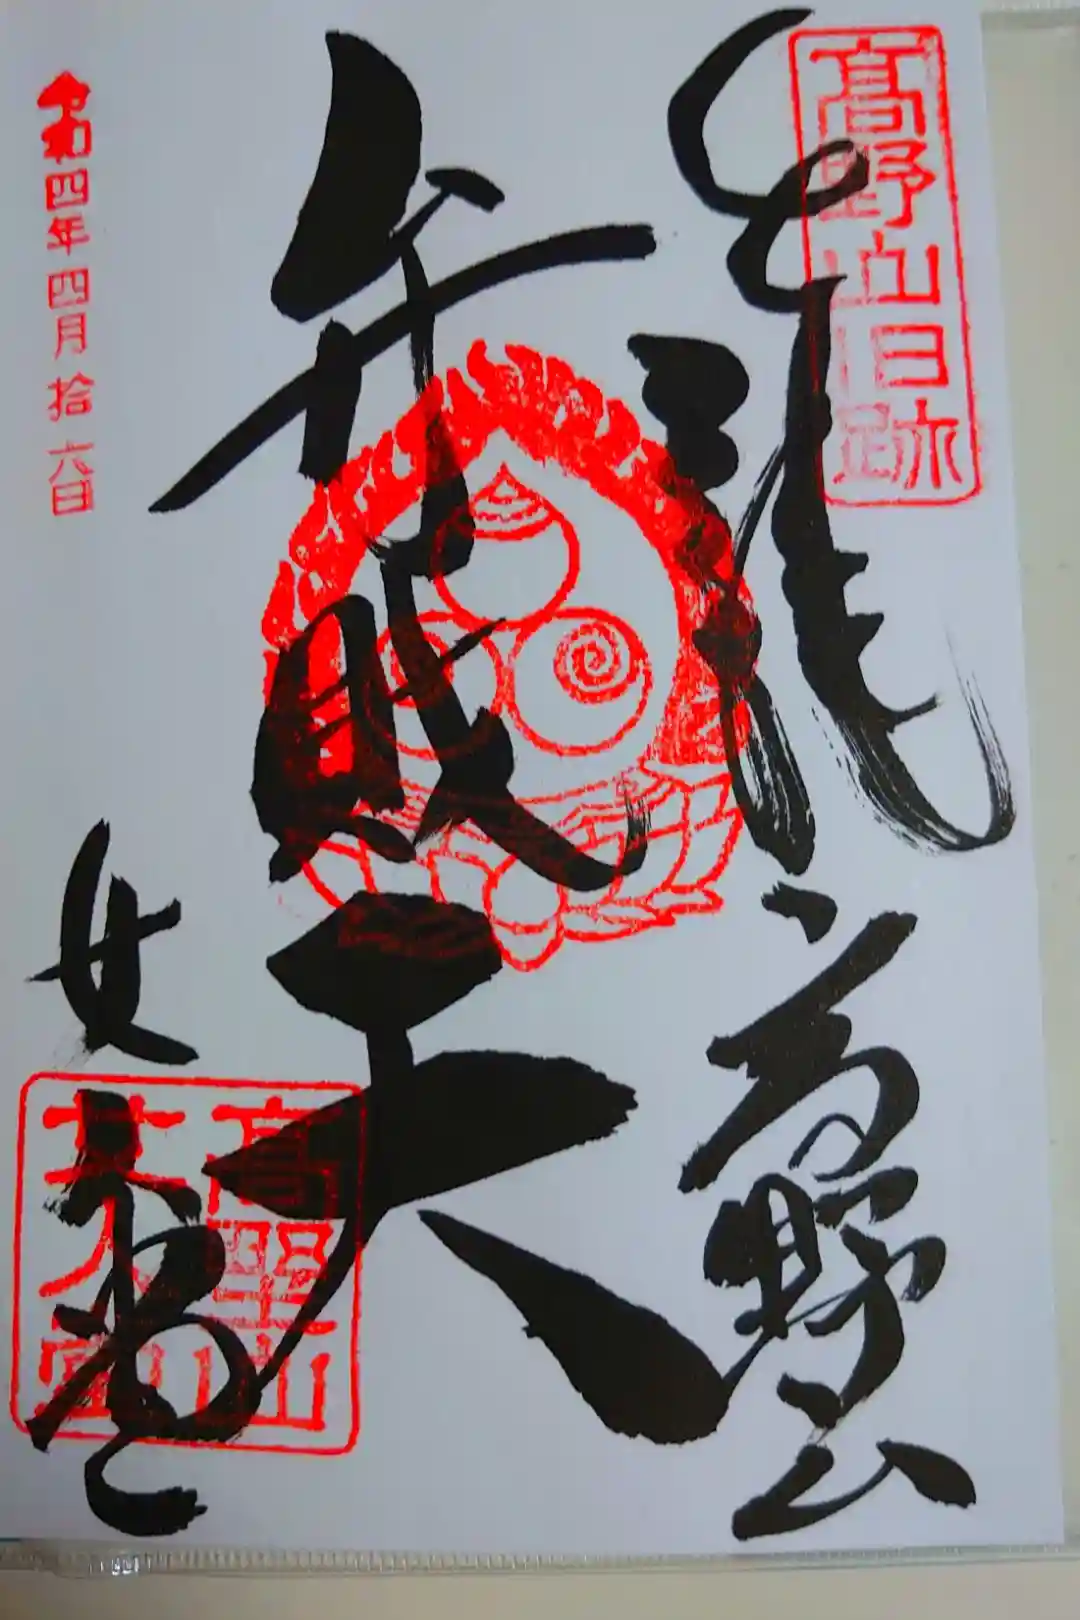 高野山旧跡
高野山
弁財天
女人堂
高野山
女人堂
令和四年四月拾六日